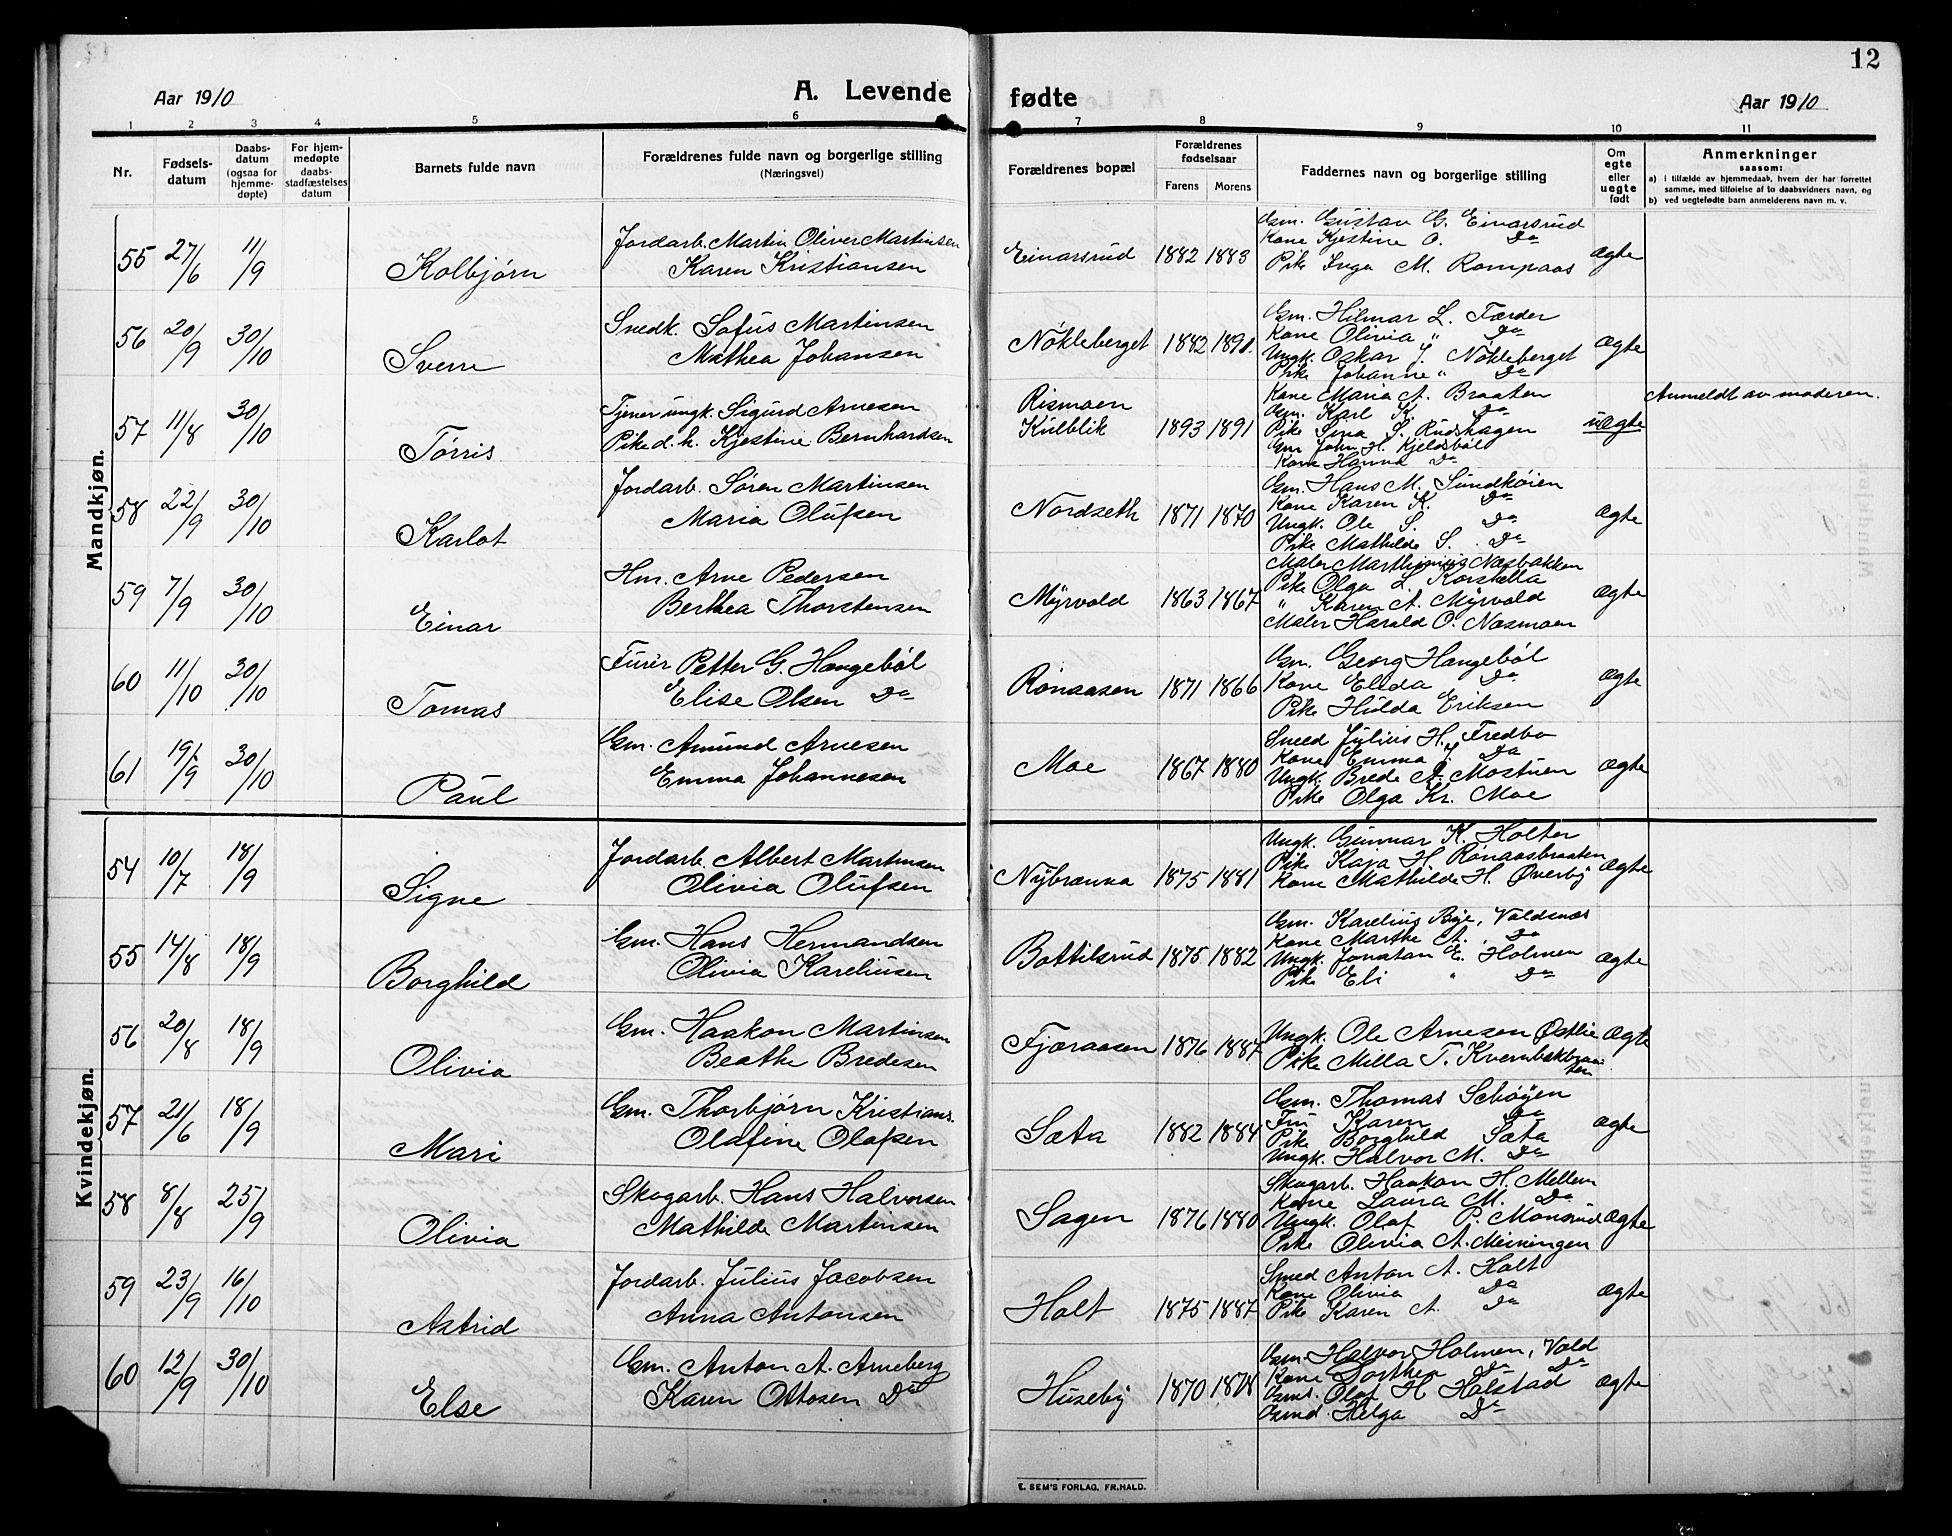 12
Aar 1910
A. Levende fødte
Aar 1910
1 2 3 4 5 6 7 8 9 10 11
Nr.
Fødsels-
datum
Daabs-
datum
(ogsaa for
hjemme-
døpte)
For hjem-
medøpte
daabs-
stadfæstelses
datum
Barnets fulde navn
Forældrenes fulde navn og borgerlige stilling
(Næringsvei)
Forældrenes bopæl
Forældrenes
fødselsaar
Farens Morens
Faddernes navn og borgerlige stilling
Om
egte
eller
uegte
født
Anmerkninger
saasom:
a) i tilfælde av hjemmedaab, hvem der har forrettet
samme, med tilføielse af to daabsvidners navn, og
b) ved uegtefødte barn anmelderens navn m. v.
Mandkjøn.
55 27/6 11/9 Kolbjørn
Jordarb. Martin Oliver Martinsen
Karen Kristiansen
Einarsrud 1882 1883
Gm. Gustav G. Einarsrud
Kone Kjestine O. Do
Pike Inga M. Rompaas
ægte
56 20/9 30/10 Sverre
Snedk. Sofus Martinsen
Mathea Johansen
Nökleberget 1882 1891.
Gm. Hilmar L. Færder
Kone Olivia " Do
Ungk. Oskar J. Nökleberget
Pike Johanne " Do
ægte
57 11/8 30/10 Törris
Tjener ungk. Sigurd Arnesen
Pike d.h. Kjestine Bernhardsen
Rismoen
Kulblik 1893 1891
Kone Maria A. Braaten
Gm. Karl K. Do
Pike Sina S. Rudshagen
Gm John H. Kjeldsböl
Kone Hanna Do
uægte
Anmeldt av moderen.
58 22/9 30/10 Karlot
Jordarb. Sören Martinsen
Maria Olufsen
Nordseth 1871 1870
Gm. Hans M. Sundköien
Kone Karen K. Do
Ungk. Ole S. Do
Pike Mathilde S. Do
ægte
59 7/9 30/10 Einar
Hm. Arne Pedersen
Berthea Thorstensen
Myrvold 1863 1867
Pike Olga L. Korshella
" Karen A. Myrvold
Maler Harald O. Næsmoen
ægte
60 11/10 30/10 Tomas
Furér Petter G. Haugeböl
Elise Olsen Do
Rönaasen 1871 1866
Gm. Georg Haugeböl
Kone Elida Do
Pike Hulda Eriksen
ægte
61 19/9 30/10 Paul
Gm. Amund Arnesen
Emma Johannesen
Moe 1867 1880
Smed Julius H. Fredbo
Kone Emma J. Do
Ungk. Brede A. Mostuen
Pike Olga Kr. Moe
ægte
Kvindekjøn.
54 10/7 18/9 Signe
Jordarb. Albert Martinsen
Olivia Olufsen
Nybraana 1875 1881
Ungk. Gunnar K. Holter
Pike Kaja H. Rönaasbraaten
Kone Mathilde H. Øverby
ægte
55 14/8 18/9 Borghild
Gm. Hans Hermandsen
Olivia Kareliusen
Bottilsrud 1875 1882
Gm. Karelius Bye, Valdsnæs
Kone Marthe A. Do
Ungk. Jonatan E. Holmen
Pike Eli " Do
ægte
56 20/8 18/9 Olivia
Gm. Haakon Martinsen
Beathe Bredesen
Fjæraasen 1876 1887
Ungk. Ole Arnesen Østlie
Pike Milla T. Kvernbækbraa-
ten
ægte
57 21/6 18/9 Mari
Gm. Thorbjörn Kristians.
Olafine Olafsen
Sæta 1882 1884
Gm. Thomas Schöyen
Fru Karen Do
Pike Borghild Sæta
Ungk. Halvor M. Do
ægte
58 8/8 25/9 Olivia
Skogarb. Hans Halvorsen
Mathilde Martinsen
Sagen 1876 1880
Skogarb. Haakon H. Mellem
Kone Laura M. Do
Ungk. Olaf P. Monsrud
Pike Olivia A. Meiningen
ægte
59 23/9 16/10 Astrid
Jordarb. Julius Jacobsen
Anna Antonsen
Holt 1875 1887
Smed Anton A. Holt
Kone Olivia Do
Pike Karen A. Do
ægte
60 12/9 30/10 Else
Gm. Anton A. Arneberg
Karen Ottosen Do
Huseby 1870 1878
Gm. Halvor Holmen, Vald
Kone Dorthea Do Do
Olaf H Halstad
Helga Do
ægte
E. SEM'S FORLAG, FR.HALD.